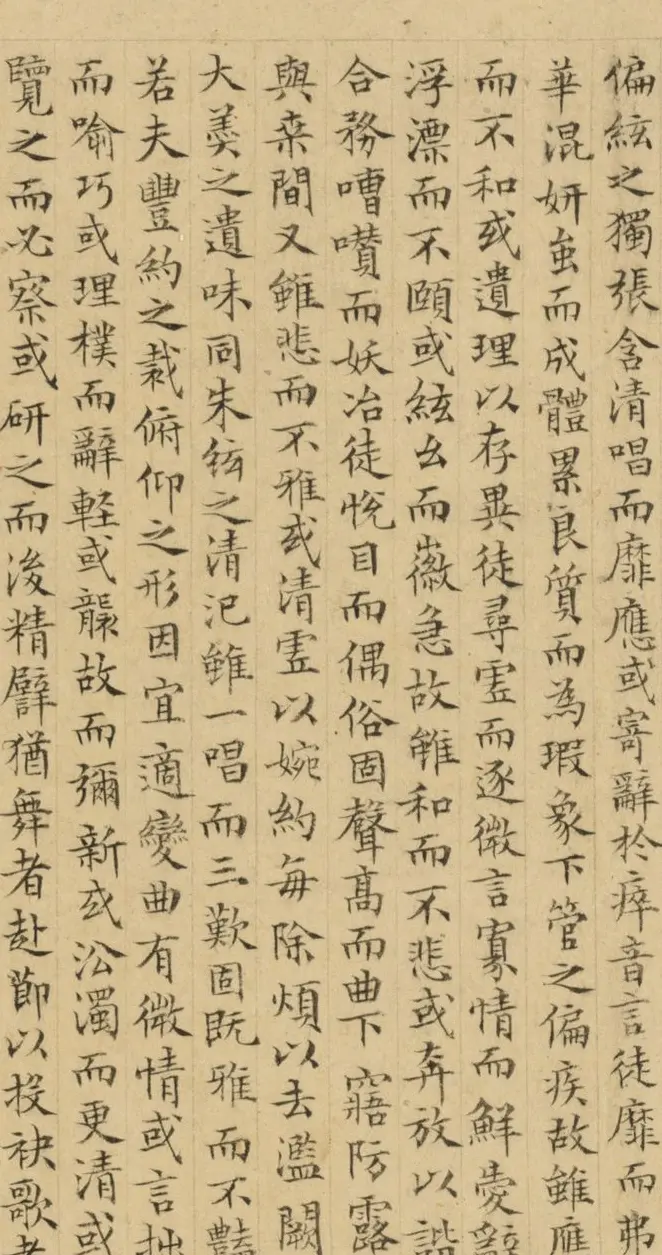 偏絃之獨張含清唱而靡應或寄辭於瘁音言徒靡而弗
華混妍蚩而成體累良質而為瑕象下管之偏疾故雖應
而不和或遺理以存異徒尋虛而逐微言寡情而鮮愛辭
浮漂而不頤或絃幺而徽急故雖和而不悲或奔放以諧
合務嘈囋而妖冶徒悅目而偶俗固聲高而曲下寤防露
與桒間又雖悲而不雅或清虛以婉約每除煩以去濫闕
大羮之遺味同朱絃之清汜雖一唱而三歎固既雅而不豔
若夫豐約之裁俯仰之形因宜適變曲有微情或言拙
而喻巧或理樸而辭輕或襲故而彌新或沿濁而更清或
覽之而必察或研之而後精譬猶舞者赴節以投袂歌者